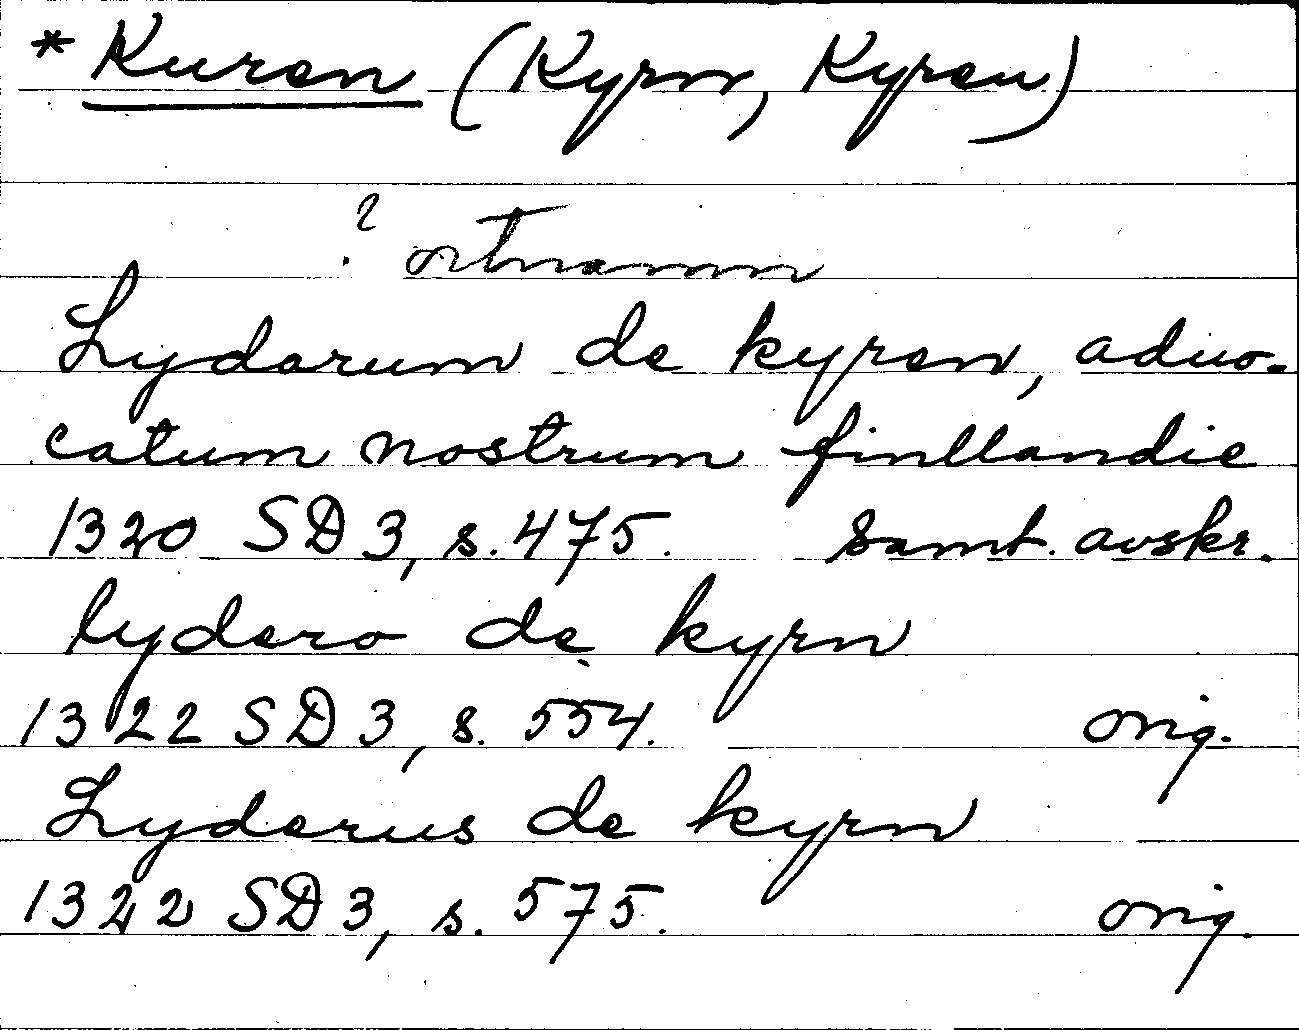 * Kuren (Kyrn, Kyren)
? ortnamn
Lyderum de kyren, aduo-
catum nostrum finllandie
1320 SD 3, s. 475. samt. avskr.
lydero de kyrn
1322 SD 3, s. 554. orig.
Lyderus de kyrn
1322 SD 3, s. 575. orig.